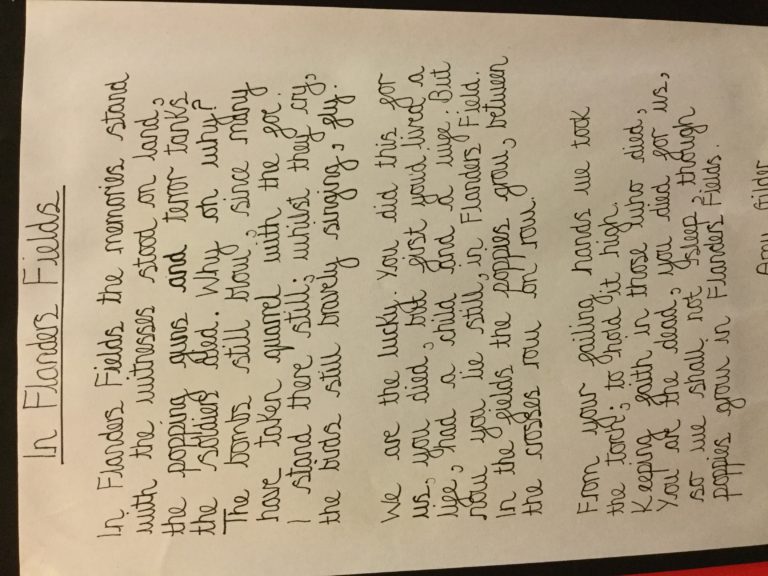 In Flanders Fields
In Flanders Fields the memories stand
with the witnesses stood on land,
the popping guns and terror tanks
the soldiers died. Why oh why?
The bombs still blow, since many
have taken quarrel with the foe.
I stand there still; whilst they cry,
the birds still bravely singing, fly.
We are the lucky. You did this for
us, you died, but first you'd lived a
life, had a child and a wife. But
now you lie still, in Flanders Field.
In the fields the poppies grow, between
the crosses row on row.
From your failing hands we took
the torch; to hold it high.
Keeping faith in those who died,
You are the dead, you died for us,
so we shall not sleep, though
poppies grow in Flanders Fields.
Amy Gilder